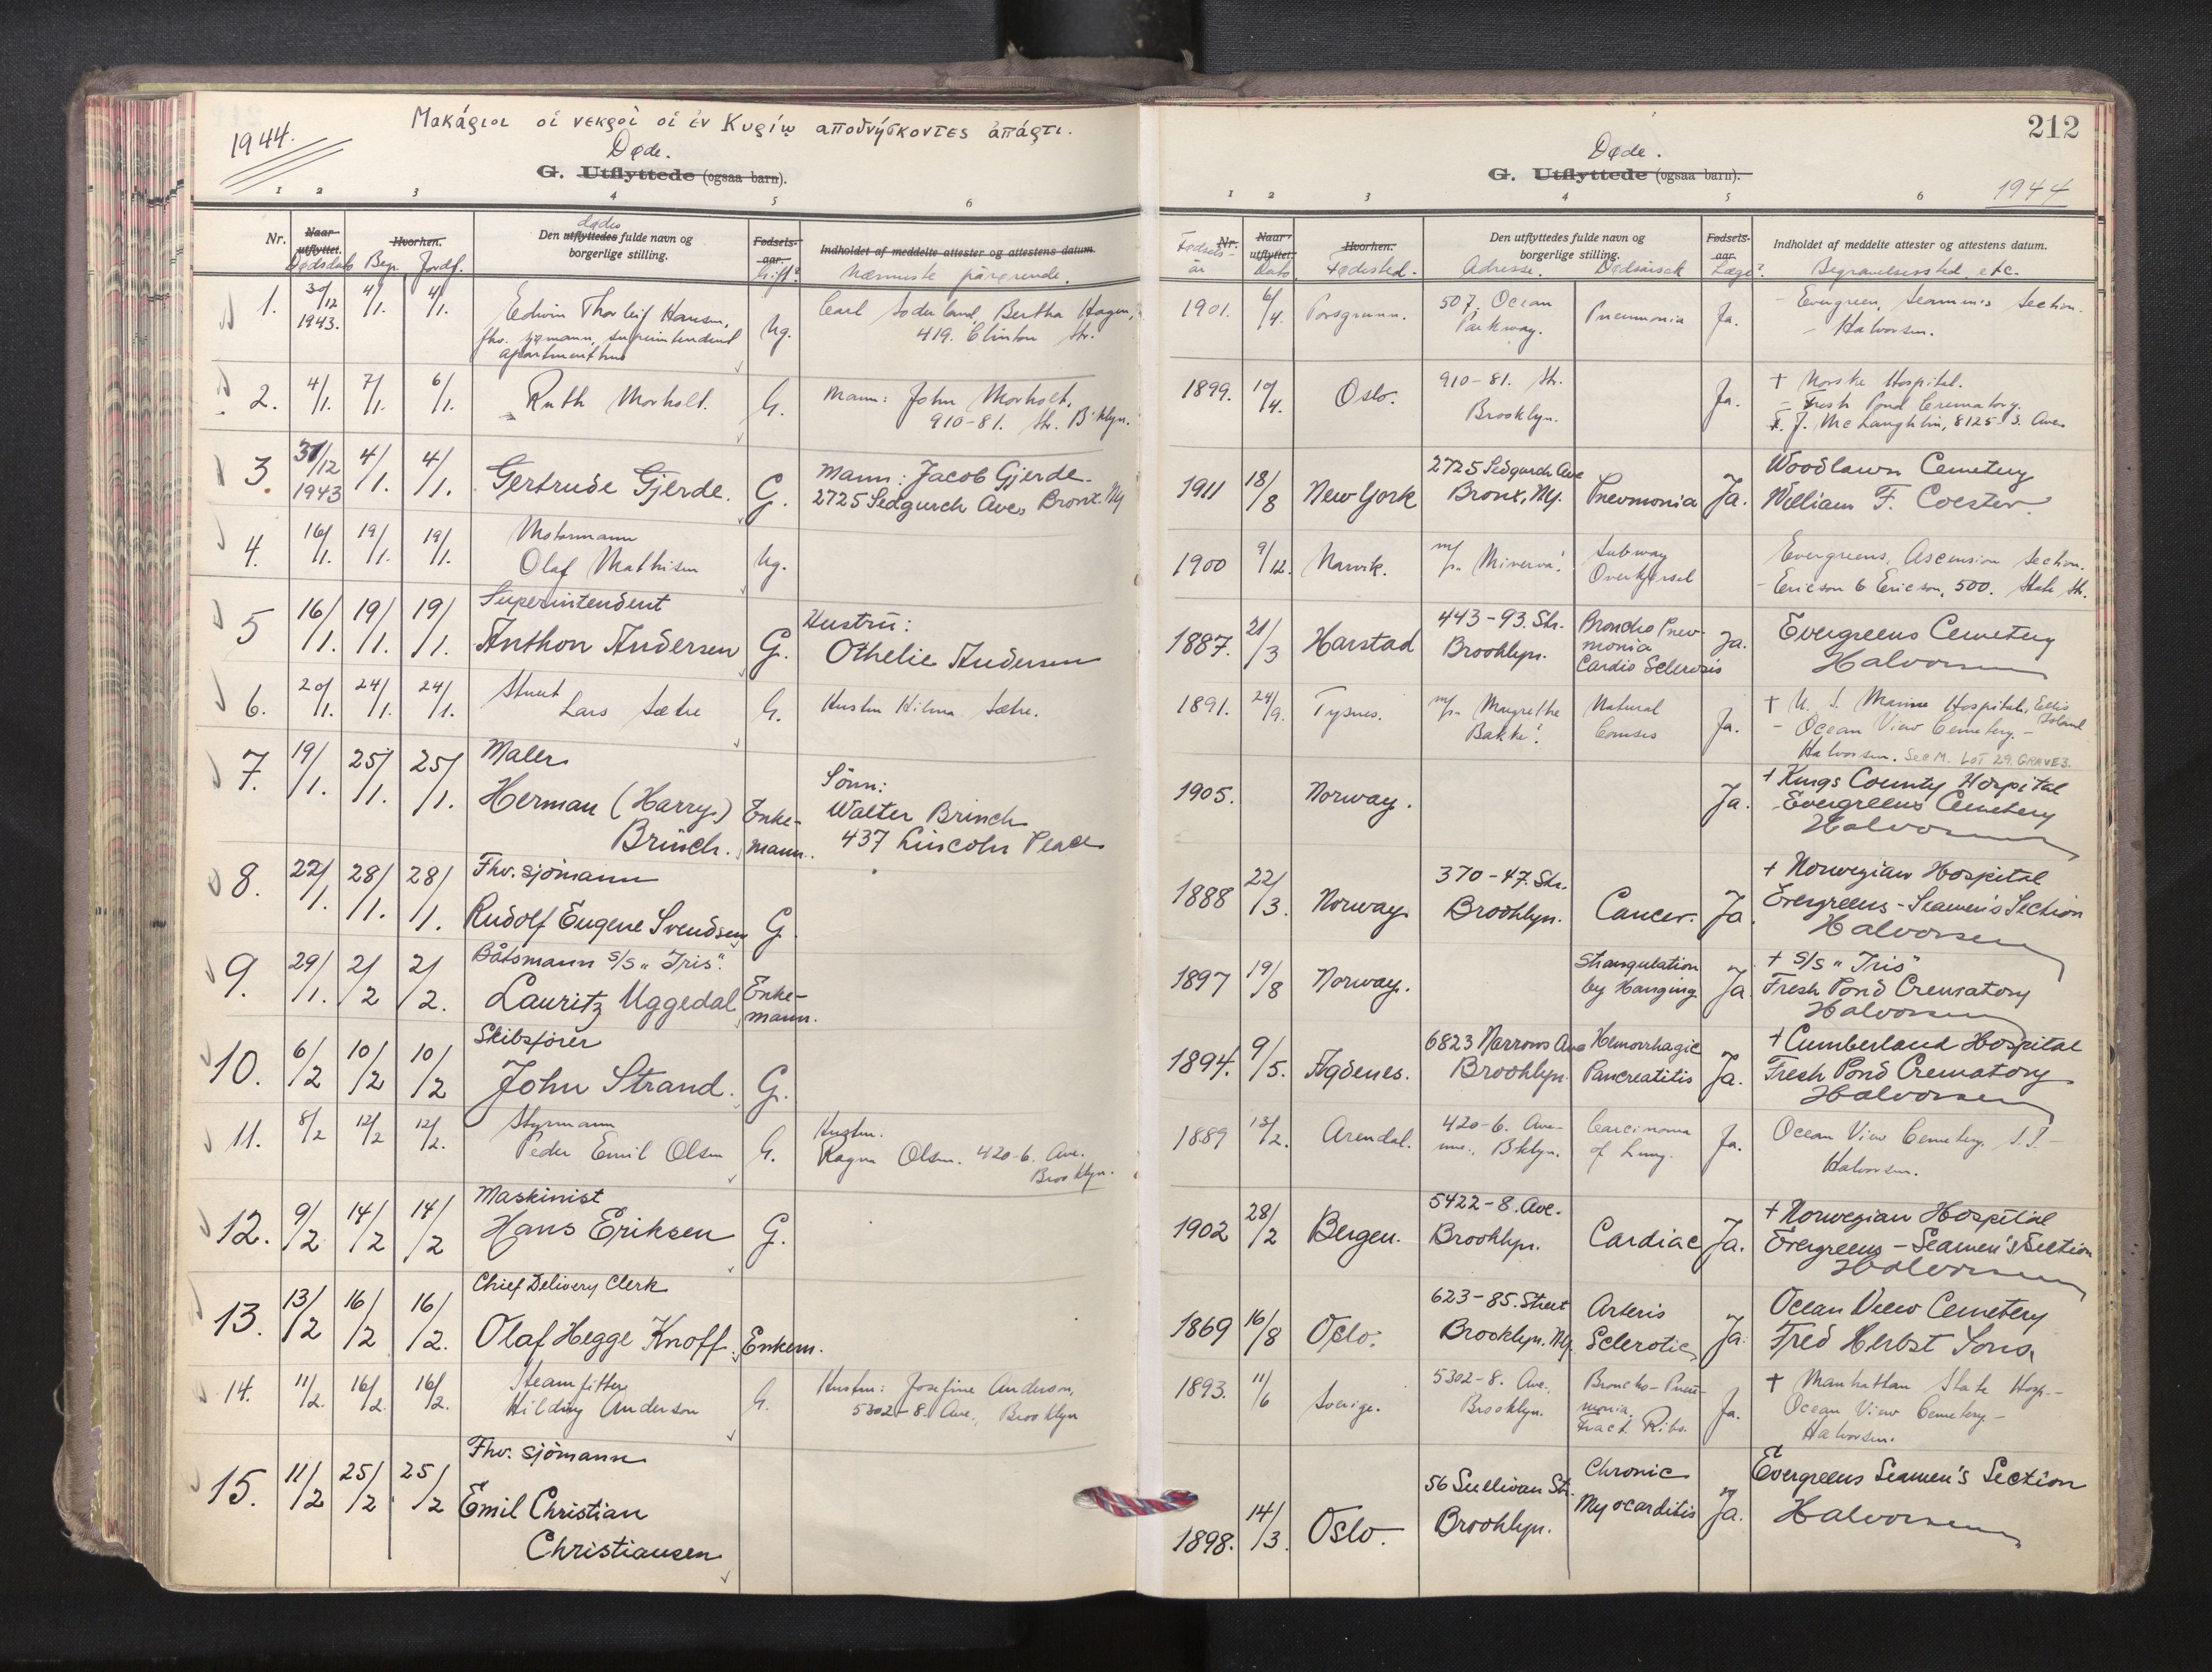 1944.
Μακάριοι οἱ νεκροὶ οἱ ἐν Κυρίῳ ἀποθνήσκοντες ἀπάρτι.
Døde.
G. Utflyttede (ogsaa barn).
1 2 3 4 5 6
Nr. Naar utflyttet. Hvorhen. Den utflyttedes fulde navn og borgerlige stilling. Fødsels-aar. Indholdet af meddelte attester og attestens datum.
Dødsdato Begr. Jordf. dødes Gift? Nærmeste pårørende.
1. 30/12 1943. 4/1. 4/1. Edwin Thorleif Hansen, Ug. Carl Soderland, Bertha Hagen,
fhv. sjømann, superintendent 419. Clinton Str.
apartmenthus
2. 4/1. 7/1. 6/1. Ruth Morholt. G. Mann: John Morholt,
910-81. Str. B'klyn.
3. 31/12 1943 4/1. 4/1. Gertrude Gjerde. G. Mann: Jacob Gjerde.
2725 Sedgurch Ave, Bronx. NY
4. 16/1. 19/1. 19/1. Motormann
Olaf Mathisen Ug.
5 16/1. 19/1. 19/1. Superintendent
Anthon Andersen G. Hustru:
Othelie Andersen
6. 20/1. 24/1. 24/1. Stuert
Lars Sætre G. Hustru Hilma Sætre.
7. 19/1. 25/1. 25/1. Maler
Herman (Harry) Enke- Sönn:
Brinch. mann. Walter Brinch
437 Lincoln Place
8. 22/1. 28/1. 28/1. Fhv. sjömann
Rudolf Eugene Svendsen G.
9. 29/1. 2/2 2/2. Båtsmann S/S "Iris".
Lauritz Uggedal Enke-
mann.
10. 6/2 10/2 10/2 Skibsfører
John Strand. G.
11. 8/2 12/2 12/2. Styrmann
Peder Emil Olsen G. Hustru.
Ragna Olsen. 420-6. Ave.
Brooklyn.
12. 9/2 14/2 14/2 Maskinist
Hans Eriksen G.
13. 13/2 16/2 16/2. Chief Delivery Clerk
Olaf Hegge Knoff. Enkem.
14. 11/2. 16/2. 16/2. Steamfitter
Hilding Anderson G. Hustru: Josefine Anderson,
5302-8. Ave., Brooklyn
15. 11/2 25/2 25/2 Fhv. sjömann
Emil Christian
Christiansen
212
Døde.
G. Utflyttede (ogsaa barn).
1944
1 2 3 4 5 6
Nr. Naar utflyttet Hvorhen. Den utflyttedes fulde navn og borgerlige stilling. Fødsels-aar. Indholdet af meddelte attester og attestens datum.
Fødsels-år Dato Fødested. Adresse. Dødsårsak Læge? Begravelsessted etc.
1901. 6/4. Porsgrunn. 507. Ocean Parkway. Pneumonia Ja. - Evergreen, Seamen's Section.
- Halvorsen.
1899. 10/4. Oslo. 910-81. Str. Brooklyn. Ja. + Norske Hospital.
- Fresh Pond Crematory.
F. J. McLaughlin, 8125-3. Ave.
1911 18/8 New York 2725 Sedgurch Ave Bronx, NY. Pnevmonia Ja. Woodlawn Cemetery
William F. Coester.
1900 9/12. Narvik. m/s. "Minerva". Subway Overkjørsel Evergreens, Ascension Section.
- Ericson & Ericson, 500. State Str.
1887. 21/3 Harstad 443-93. Str. Brooklyn. Broncho Pnev-monia Cardio Sclerosis Ja. Evergreens Cemetery
Halvorsen
1891. 24/9. Tysnes. m/s. "Margrethe Bakke". Natural Causes Ja. + U. S. Marine Hospital, Ellis Island
- Ocean View Cemetery. -
Halvorsen. SEC M. LOT 29. GRAVE 3.
1905. Norway. Ja. + Kings County Hospital
Evergreens Cemetery
Halvorsen
1888 22/3. Norway. 370-47. Str. Brooklyn. Cancer. Ja. + Norwegian Hospital
Evergreens - Seamen's Section
Halvorsen
1897 19/8 Norway. Strangulation by Hanging. Ja. + S/S "Iris"
Fresh Pond Crematory
Halvorsen
1894. 9/5. Agdenes. 6823 Narrows Ave Brooklyn. Hemorrhagic Pancreatitis Ja. + Cumberland Hospital
Fresh Pond Crematory
Halvorsen
1889 13/2. Arendal. 420-6. Ave-nue, Bklyn. Carcinoma of Lung. Ja. Ocean View Cemetery. S.I. -
Halvorsen.
1902 28/2 Bergen. 5422-8. Ave. Brooklyn. Cardiac Ja. + Norwegian Hospital
Evergreens - Seamen's Section
Halvorsen
1869 16/8 Oslo. 623-85. Street Brooklyn. NY. Arteris Sclerotic Ja. Ocean View Cemetery
Fred Herbst Sons
1893. 11/6 Sverige. 5302-8. Ave., Brooklyn. Broncho-Pneu-monia, Fract. Ribs. Ja. + Manhattan State Hosp.-
Ocean View Cemetery -
Halvorsen.
1898. 14/3. Oslo. 56 Sullivan Str. Brooklyn. Chronic Myocarditis Ja. Evergreens Seamen's Section
Halvorsen